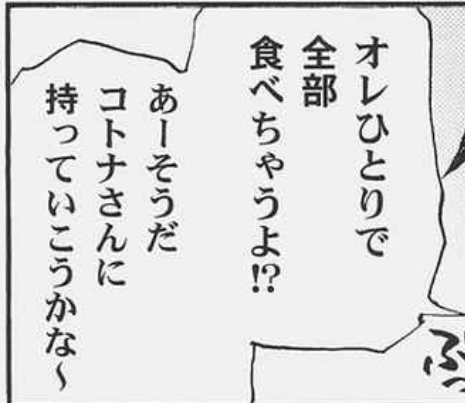 オレひとりで
全部
食べちゃうよ!?
あーそうだ
コトナさんに
持っていこうかな～